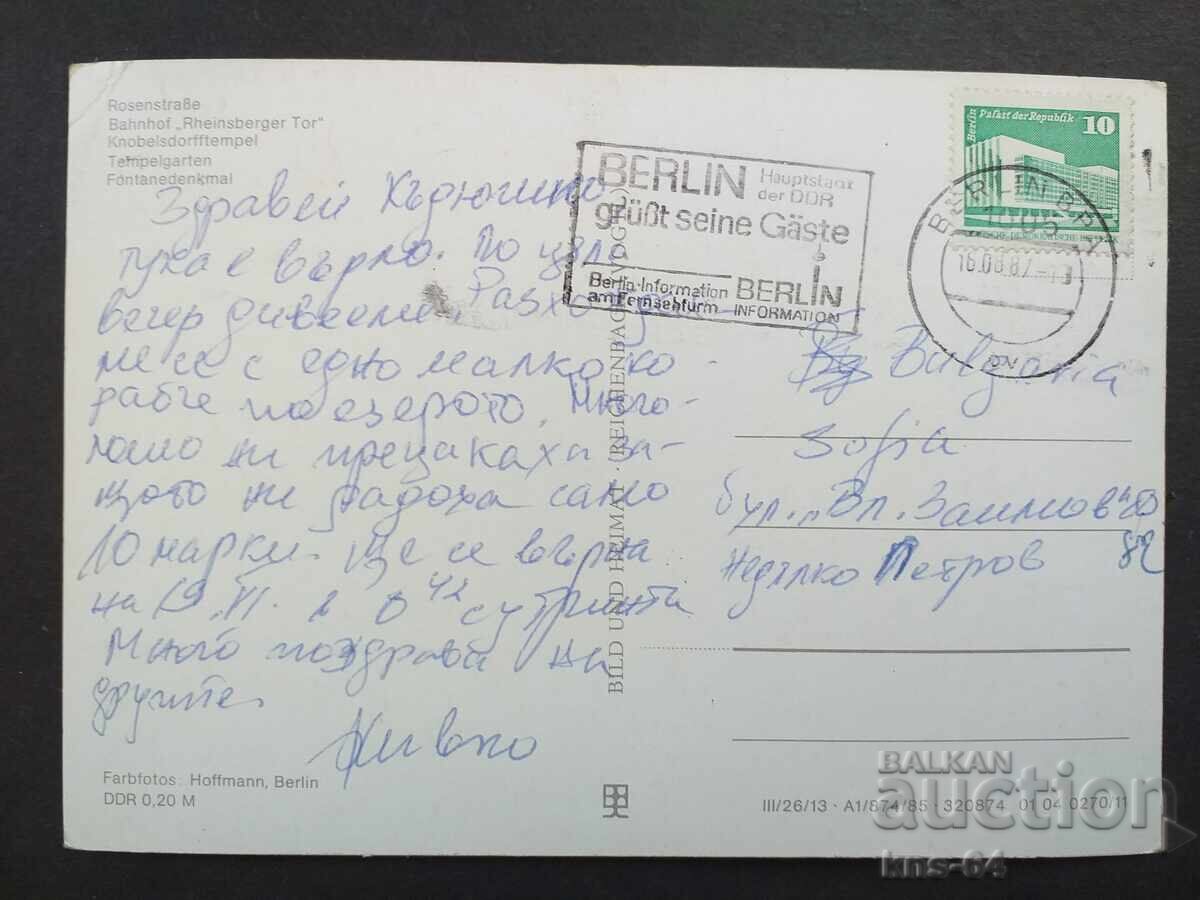 Rosenstraße
Bahnhof „Rheinsberger Tor"
Knobelsdorfftempel
Tempelgarten
Fontanedenkmal
BERLIN Hauptstadt
der DDR
grüßt seine Gäste
Berlin-Information BERLIN
am Fernsehturm INFORMATION
Berlin Palast der Republik 10
BERLIN BPA
1005
Здравей
тука е върло. По цяла
вечер дивеем. Разхожда-
ме се с едно малко ко-
рабче по езерото. Много
ни прецакаха за-
щото ни дадоха само
10 марки. Ще се върна
на 19. в 0 42 сутринта
Много поздрави на
другите.
Живко
Bulgaria
Sofia
бул. „Вл. Заимов"
Недялко Петров 82
BILD UND HEIMAT · REICHENBACH (VOGTL)
Farbfotos: Hoffmann, Berlin
DDR 0,20 M
III/26/13 · A1/874/85 · 320874 01 04 0270/11
BALKAN
auction
kns-64